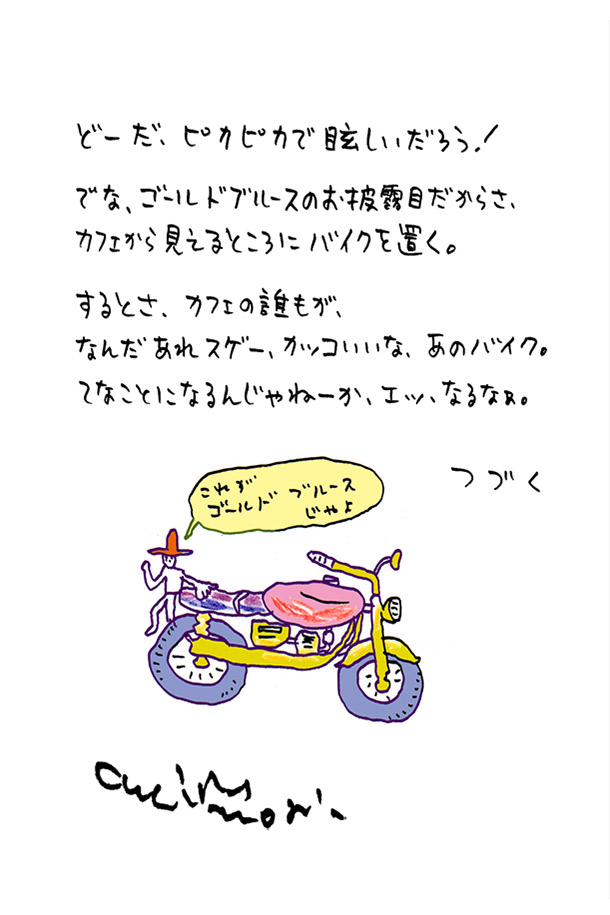 どーだ、ピカピカで眩しいだろう！
でな、ゴールドブルースのお披露目だからさ、
カフェから見えるところにバイクを置く。
するとさ、カフェの誰もが、
なんだあれスゲー、カッコいいな、あのバイク。
てなことになるんじゃねーか、エッ、なるなぁ。
つづく
これず
ゴールド ブルース
じゃよ